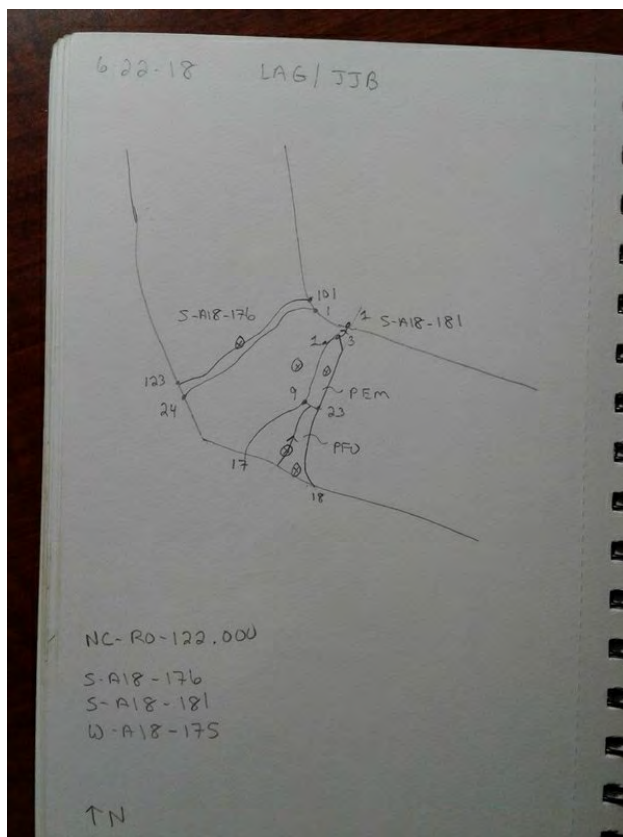 6-22-18 LAG/JJB
101
1
S-A18-176
1
S-A18-181
2
3
123
24
9
PEM
23
PFO
17
18
NC-RO-122.000
S-A18-176
S-A18-181
W-A18-175
↑N